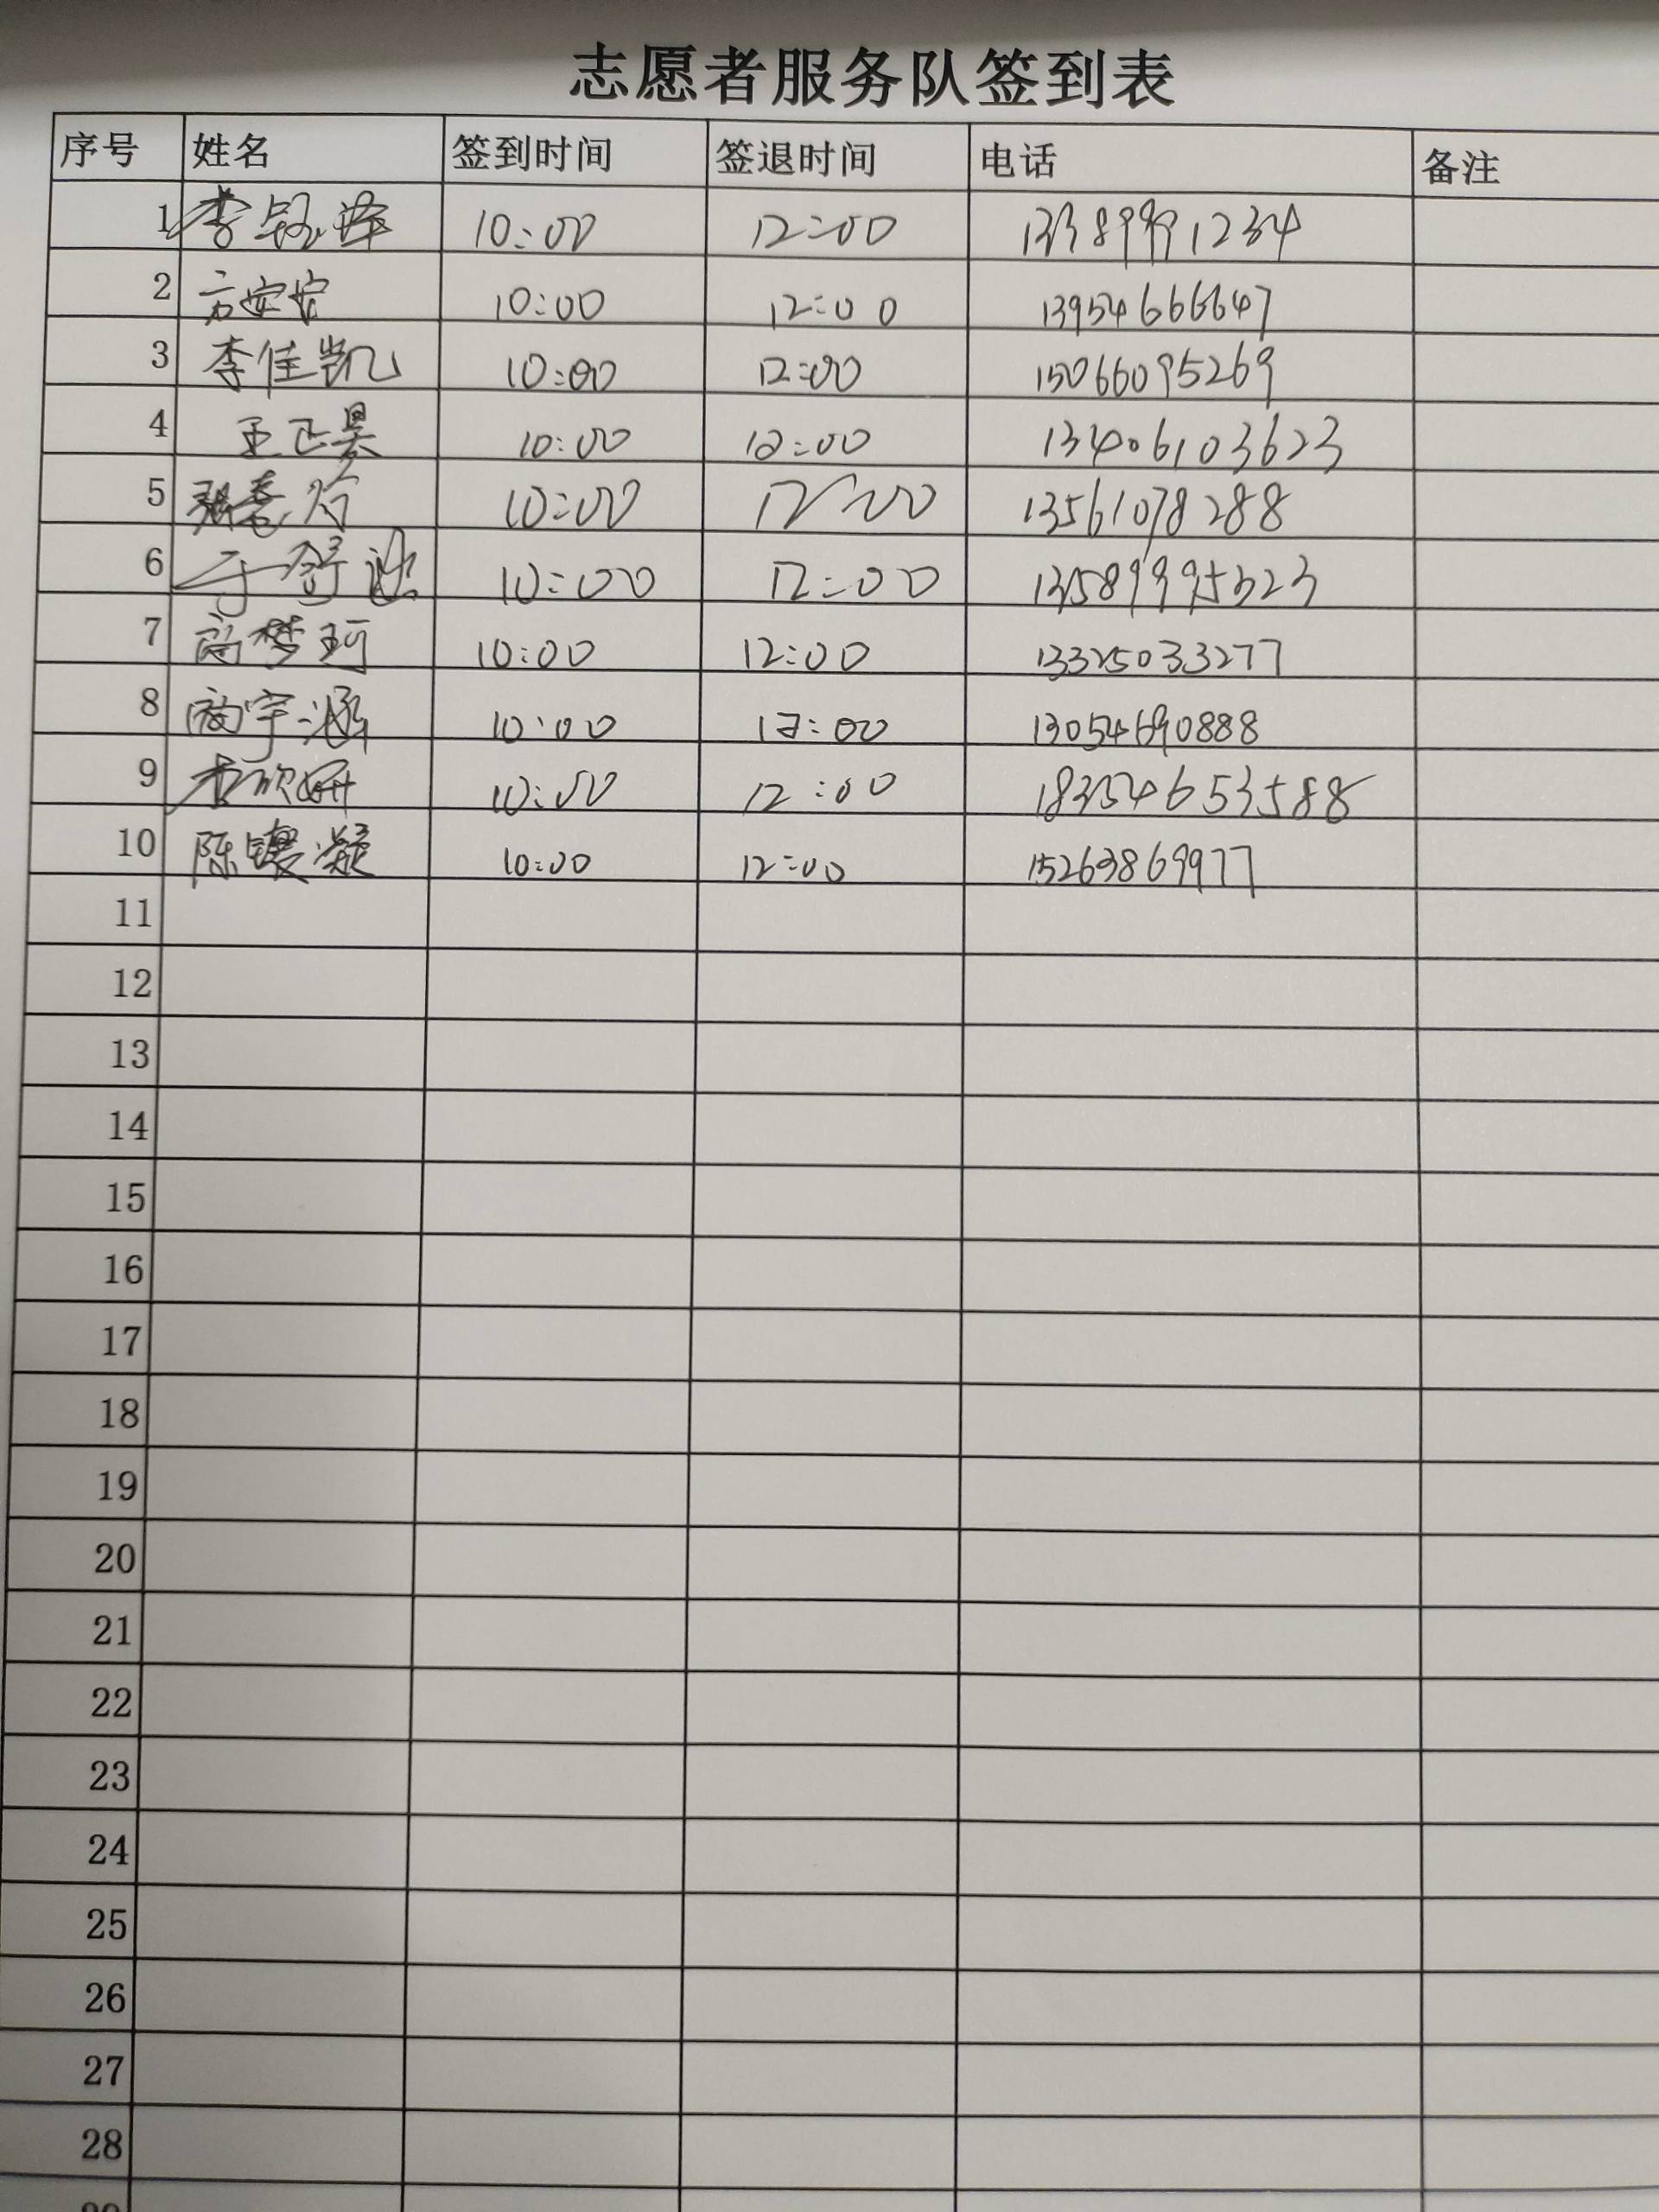 志愿者服务队签到表
序号 姓名 签到时间 签退时间 电话 备注
1 李钰泽 10:00 12:00 13389991234
2 方安安 10:00 12:00 13954666647
3 李佳凯 10:00 12:00 15066095269
4 王正昊 10:00 12:00 13406103623
5 10:00 12:00 13561078288
6 于舒 10:00 12:00 13589995323
7 高梦珂 10:00 12:00 13325033277
8 高宇涵 10:00 12:00 13054690888
9 李欣妍 10:00 12:00 18354653588
10 陈 凝 10:00 12:00 15263869977
11
12
13
14
15
16
17
18
19
20
21
22
23
24
25
26
27
28